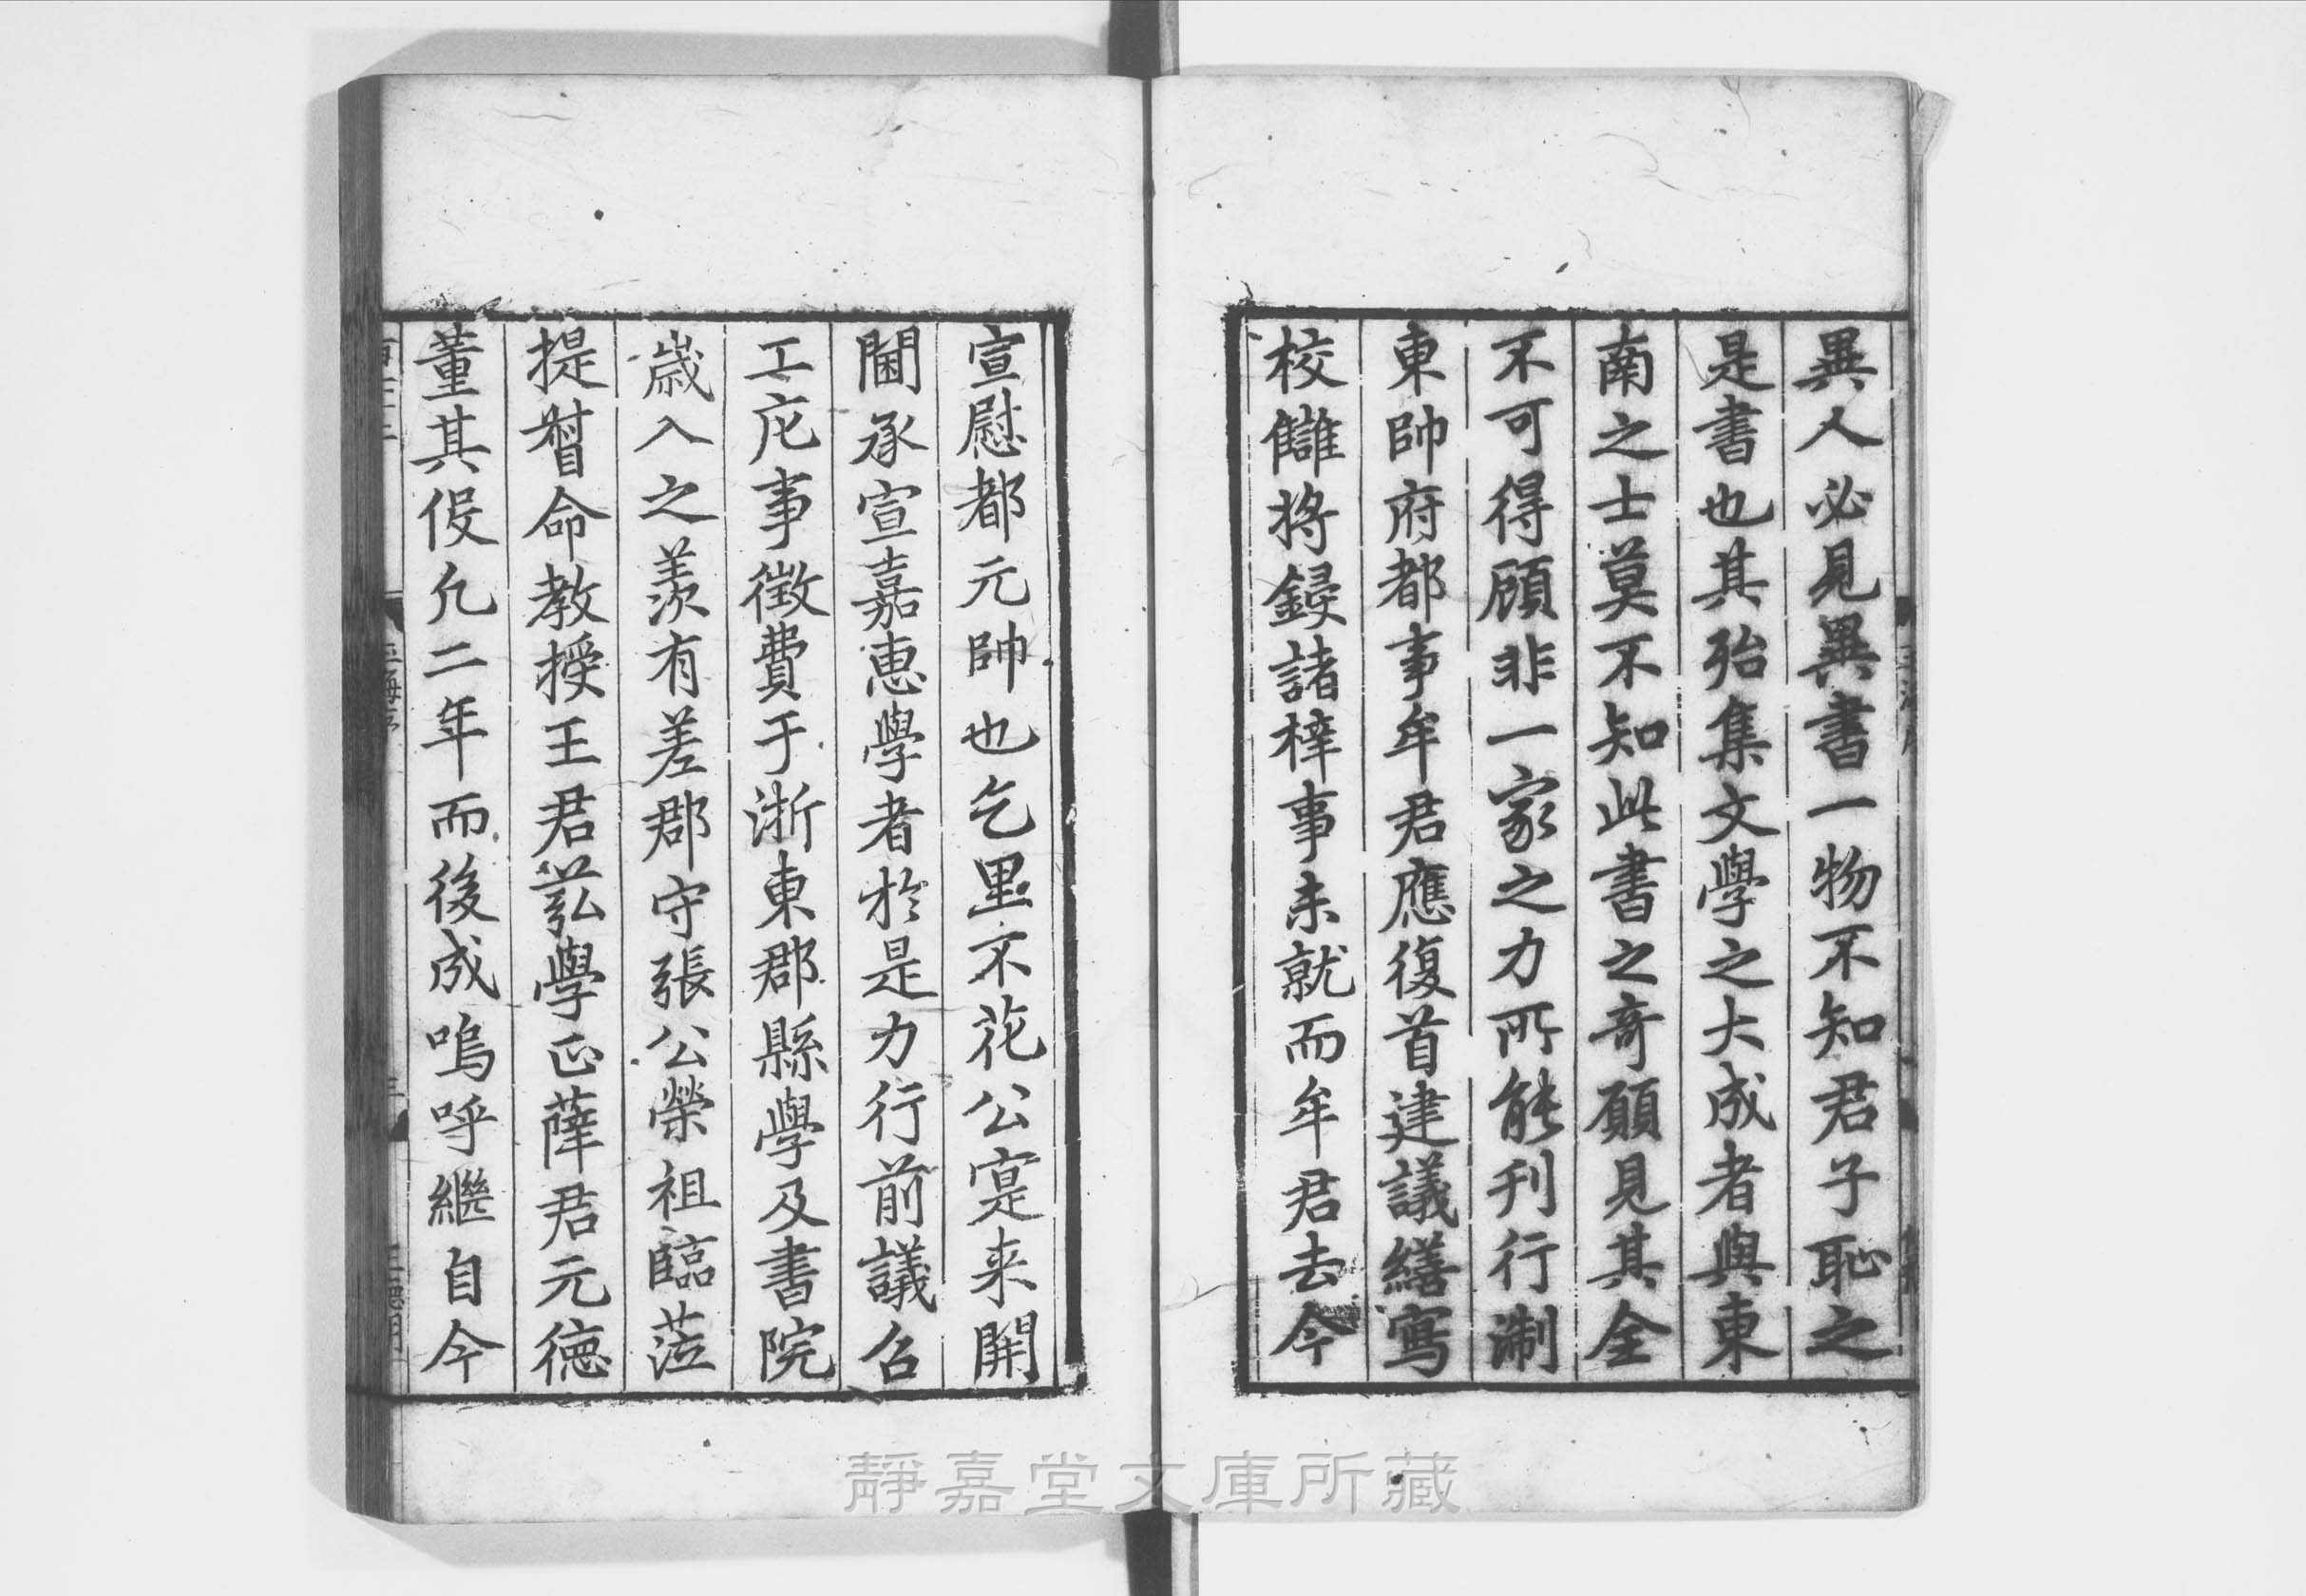 異人必見異書一物不知君子恥之
是書也其殆集文學之大成者與東
南之士莫不知此書之奇願見其全
不可得顧非一家之力所能刊行淛
東帥府都事牟君應復首建議繕寫
校讎將鋟諸梓事未就而牟君去今
宣慰都元帥也乞里不花公寔来開
閫承宣嘉惠學者於是力行前議召
工庀事徵費于浙東郡縣學及書院
歲入之羡有差郡守張公榮祖臨莅
提督命教授王君茲學正薛君元德
董其役凢二年而後成嗚呼繼自今
玉海序
三
王德明
靜嘉堂文庫所藏